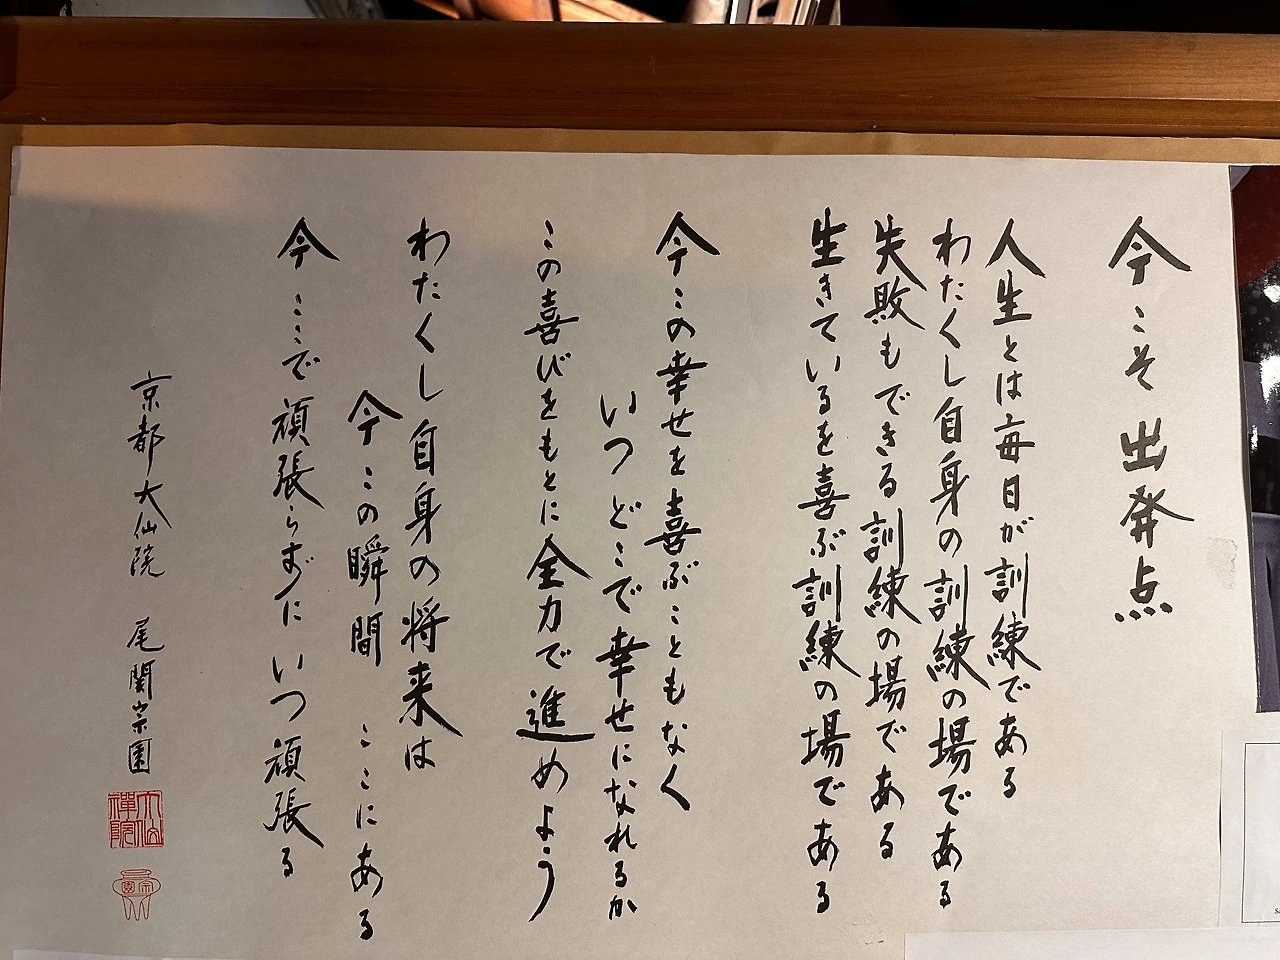 今こそ出発点
人生とは毎日が訓練である
わたくし自身の訓練の場である
失敗もできる訓練の場である
生きているを喜ぶ訓練の場である
今この幸せを喜ぶこともなく
いつどこで幸せになれるか
この喜びをもとに全力で進めよう
わたくし自身の将来は
今この瞬間 ここにある
今ここで頑張らずにいつ頑張る
京都大仙院 尾関宗園
大仙禅院
宗園